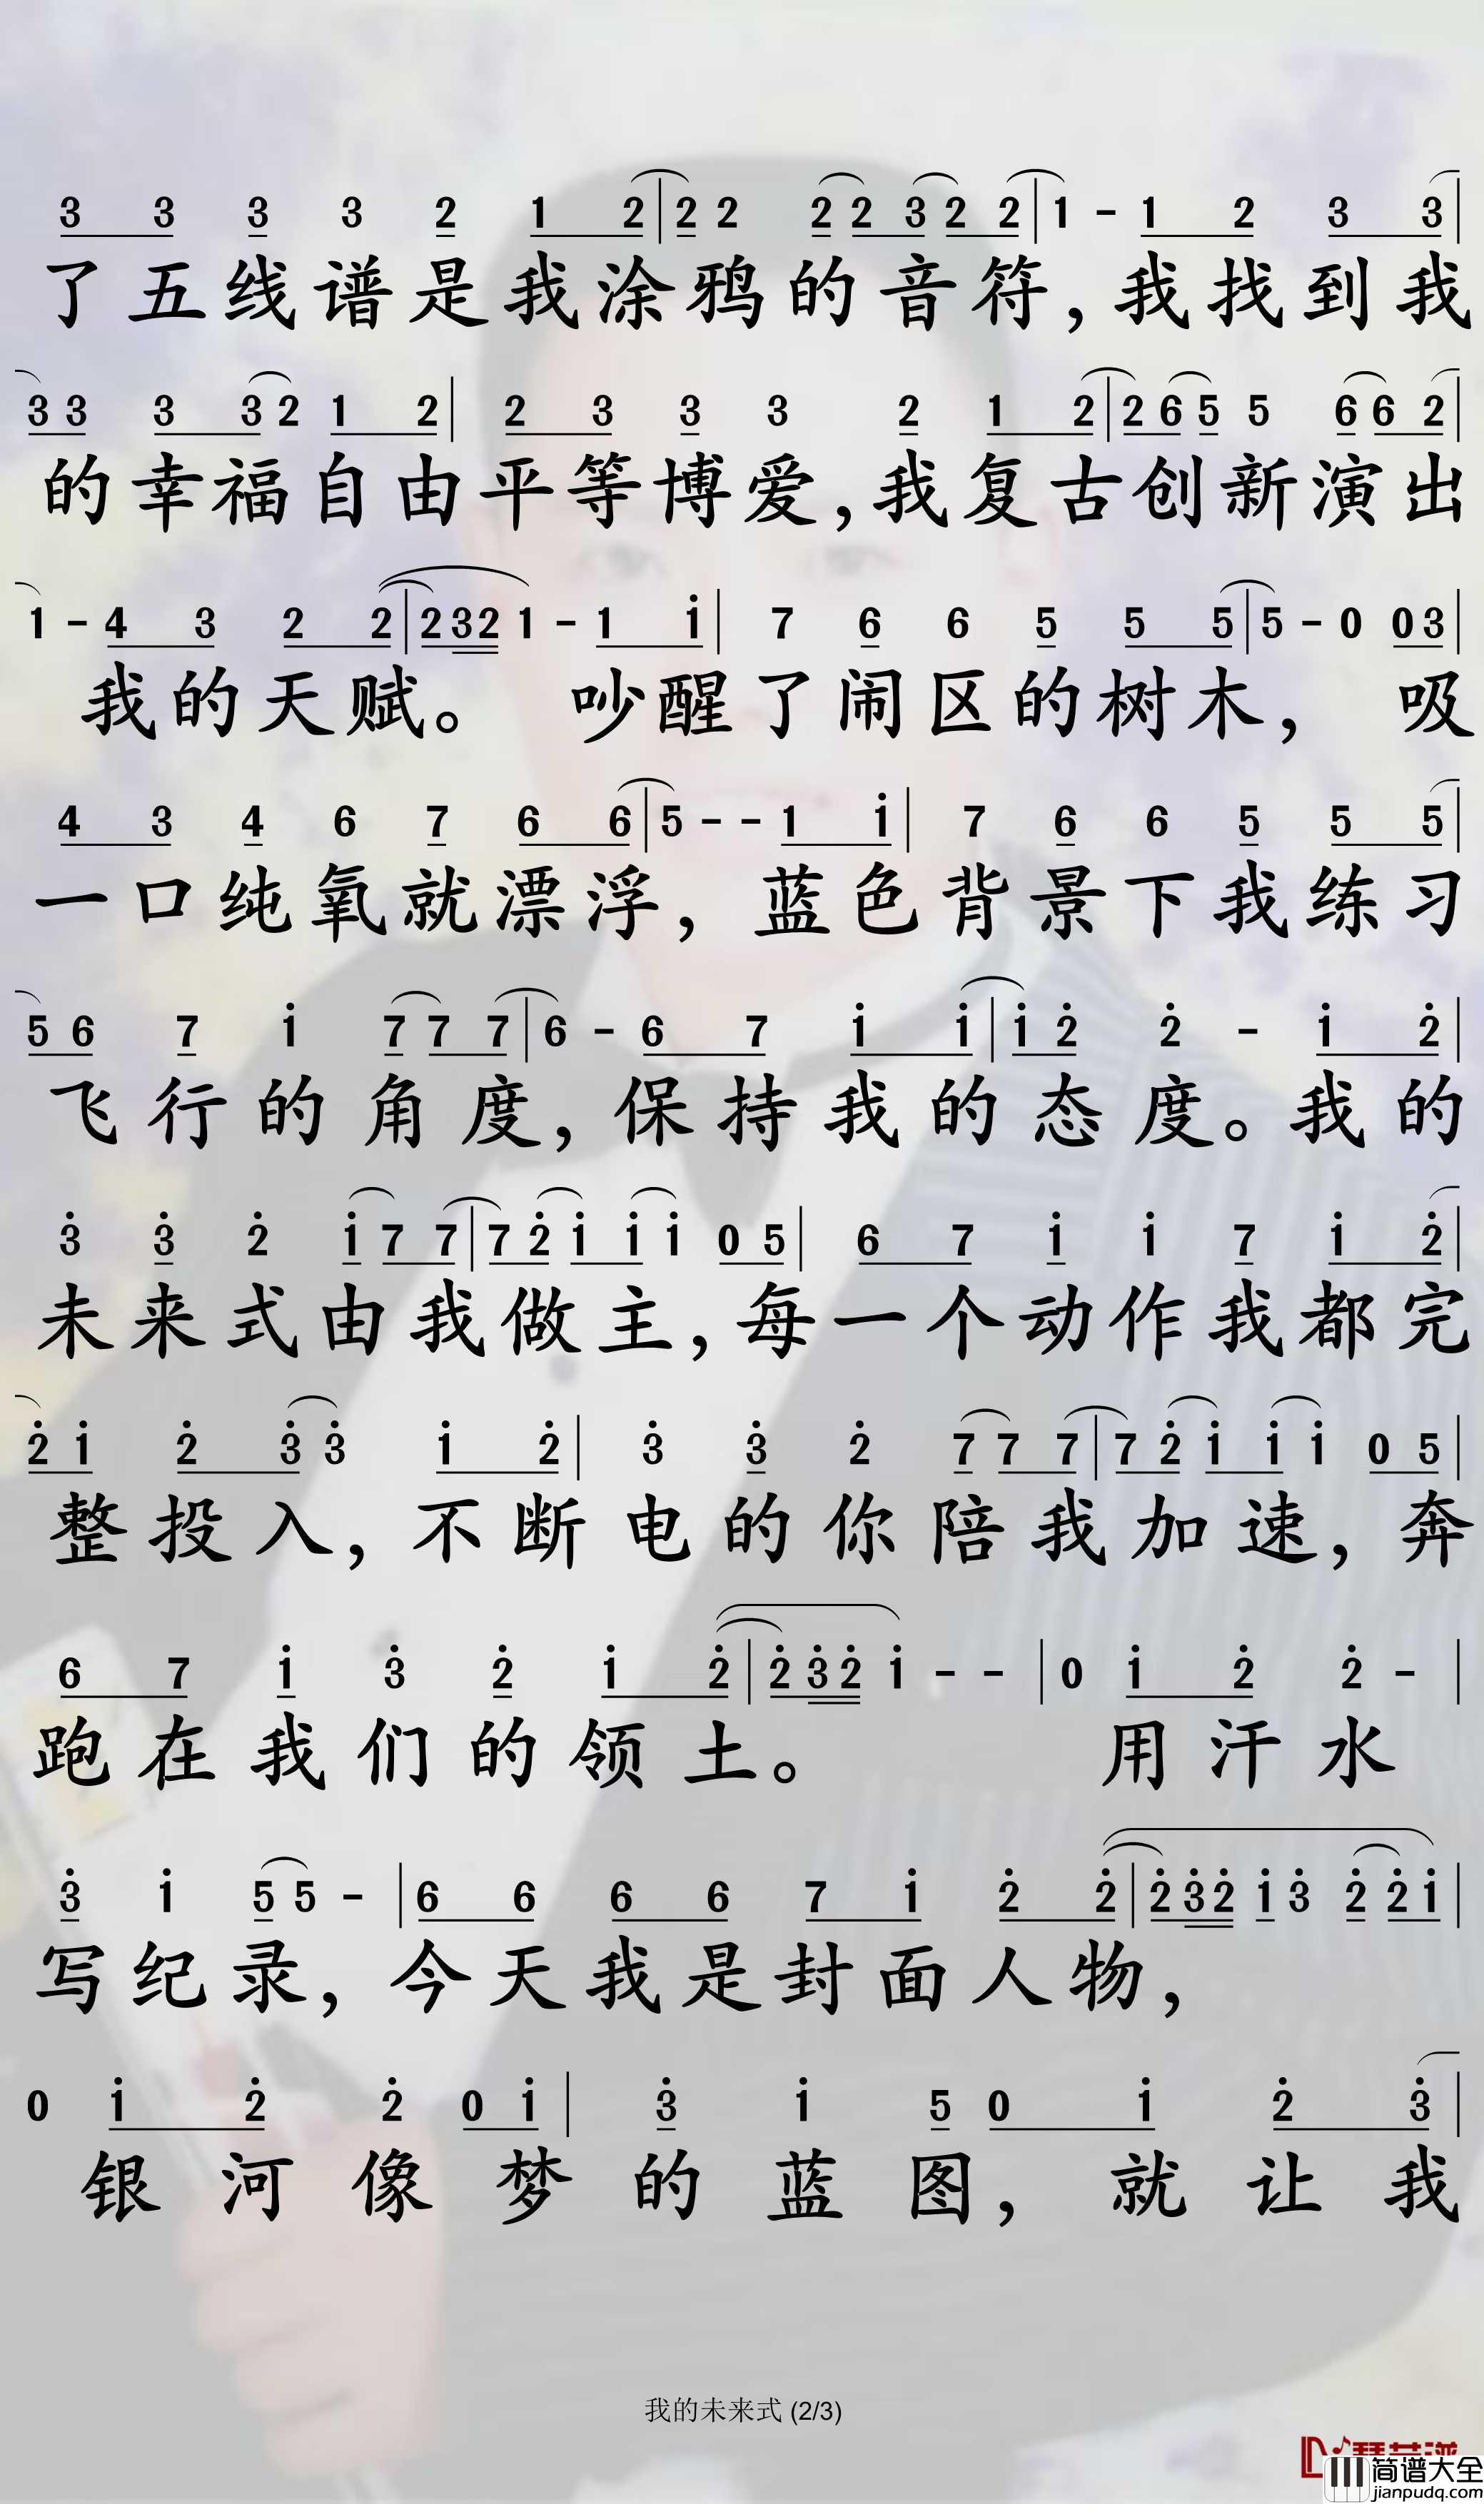 3 3 3 3 2 1 2|2 2 2 2 3 2 2|1 - 1 2 3 3|
了五线谱是我涂鸦的音符,我找到我
3 3 3 3 2 1 2|2 3 3 3 2 1 2|2 6 5 5 6 6 2|
的幸福自由平等博爱,我复古创新演出
1 - 4 3 2 2|2 3 2 1 - 1 i|7 6 6 5 5 5|5 - 0 0 3|
我的天赋。 吵醒了闹区的树木, 吸
4 3 4 6 7 6 6|5 - - 1 i|7 6 6 5 5 5|
一口纯氧就漂浮,蓝色背景下我练习
5 6 7 i 7 7 7|6 - 6 7 i i|i 2 2 - i 2|
飞行的角度,保持我的态度。我的
3 3 2 i 7 7|7 2 i i i 0 5|6 7 i i 7 i 2|
未来式由我做主,每一个动作我都完
2 i 2 3 3 i 2|3 3 2 7 7 7|7 2 i i i 0 5|
整投入,不断电的你陪我加速,奔
6 7 i 3 2 i 2|2 3 2 i - -|0 i 2 2 -|
跑在我们的领土。 用汗水
3 i 5 5 -|6 6 6 6 7 i 2 2|2 3 2 i 3 2 2 i|
写纪录,今天我是封面人物,
0 i 2 2 0 i|3 i 5 0 i 2 3|
银河像梦的蓝图,就让我
我的未来式 (2/3)
简谱大全
jianpudq.com